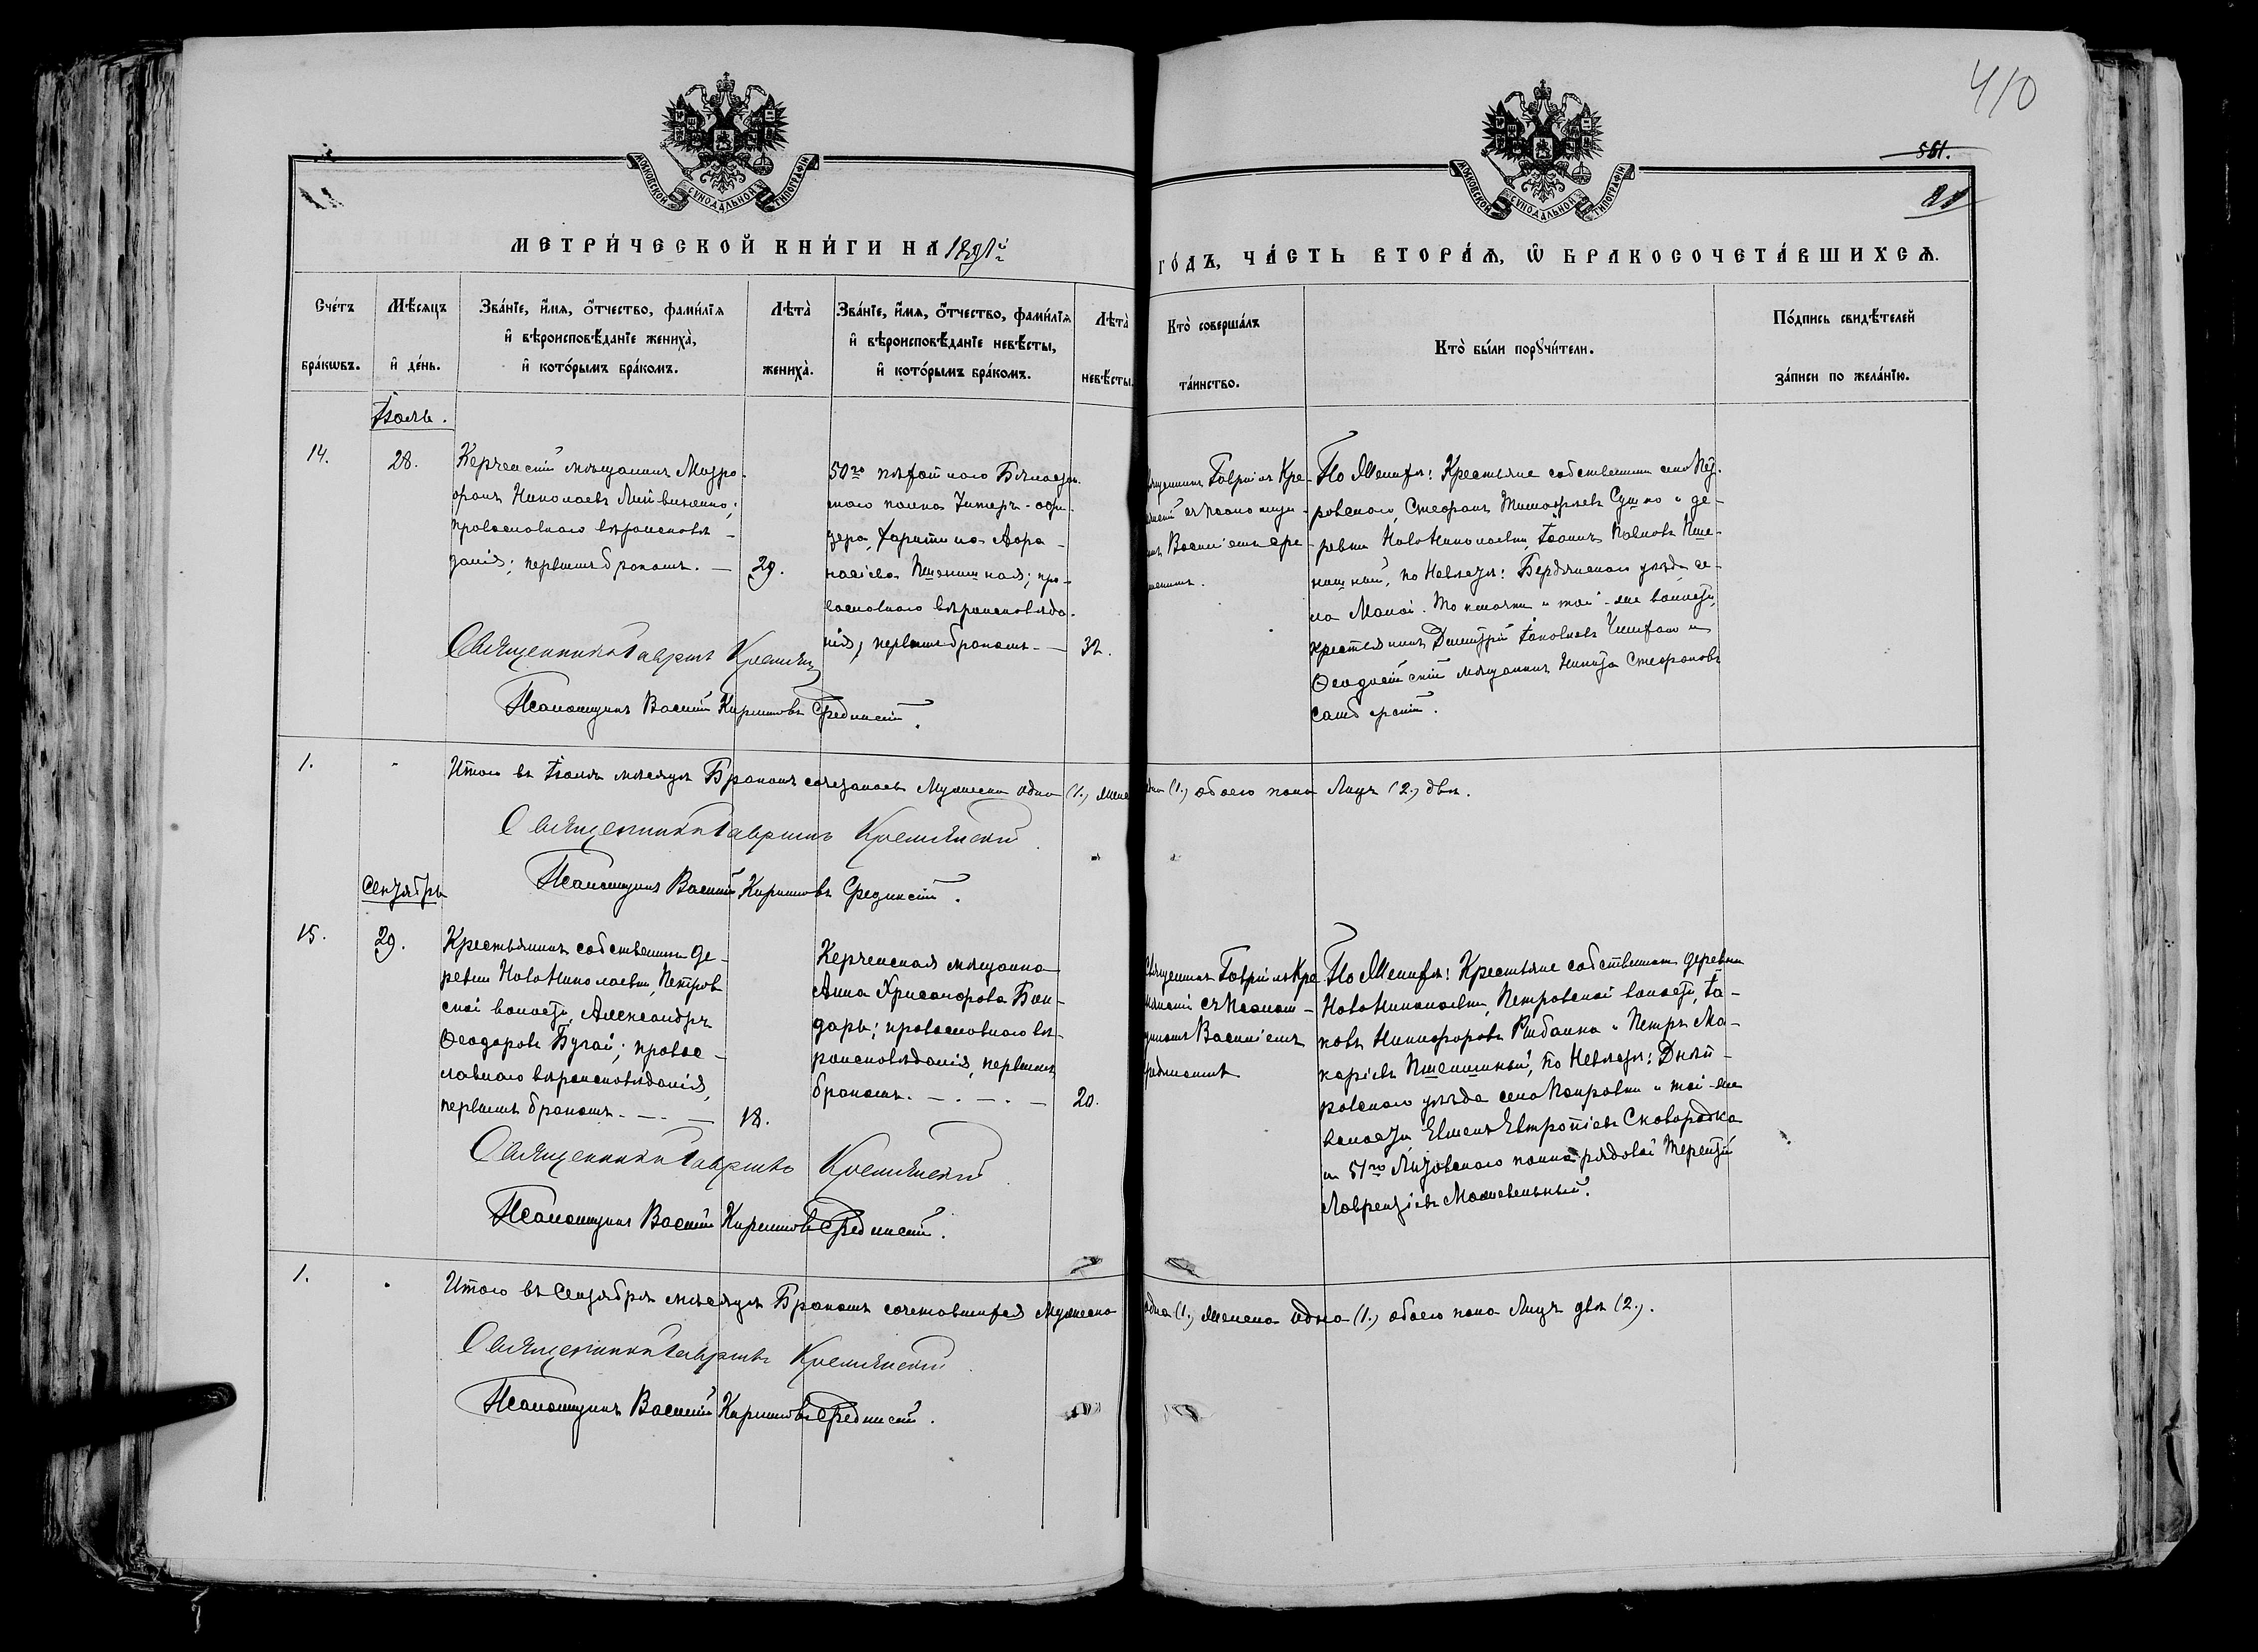 410
561.
МОСКОВСКОЙ СѴНОДАЛЬНОЙ ТИПОГРАФІИ
МОСКОВСКОЙ СѴНОДАЛЬНОЙ ТИПОГРАФІИ
МЕТРИ́ЧЕСКОЙ КНИ́ГИ НА 1891й
ГО́ДЪ, ЧА́СТЬ ВТОРА́Ѧ, Ѿ БРАКОСОЧЕТА́ВШИХСѦ.
Сче́тъ бра́кѡвъ.
Мѣ́сяцъ и҆ де́нь.
Зва́нїе, и҆́мѧ, ѻ҆́тчество, фами́лїѧ
и҆ вѣроисповѣ́данїе жениха̀,
и҆ кото́рымъ бра́комъ.
Лѣта̀ жениха̀.
Зва́нїе, и҆́мѧ, ѻ҆́тчество, фами́лїѧ
и҆ вѣроисповѣ́данїе невѣ́сты,
и҆ кото́рымъ бра́комъ.
Лѣта̀ невѣ́сты.
Кто̀ соверша́лъ
та́инство.
Кто̀ бы́ли порꙋчи́тели.
По́дпись свидѣ́телей
за́писи по жела́нїю.
Іюль.
14.
28.
Керченскій мѣщанинъ Митро-
фанъ Николаевъ Литвиненко;
православнаго вѣроисповѣ-
данія; первымъ бракомъ. —
29.
50го пѣхотнаго Бѣлосток-
скаго полка Унтеръ-офи-
цера, Харитина Афа-
насіева Пшенишная; пра-
вославнаго вѣроисповѣда-
нія; первымъ бракомъ —
32.
Священникъ Гавріилъ Кре-
мянскій съ Псаломщи-
комъ Василіемъ Сре-
динскимъ.
По Женихѣ: Крестьяне собственники села Пет-
ровскаго, Стефанъ Тимофѣевъ Сушко и де-
ревни НовоНиколаевки, Іоаннъ Павловъ Пше-
нишный, по Невѣстѣ: Бердянскаго уѣзда се-
ла Малой-Токмачки и той-же волости,
крестьянинъ Димитрій Іаковлевъ
Ѳеодосійскій мѣщанинъ Никита Стефановъ
Священникъ Гавріилъ Кремянскій
Псаломщикъ Василій Кириловъ Срединскій.
1.
Итого въ Іюлѣ мѣсяцѣ Бракомъ сочеталось Мужеска одно (1.) Жене
одна (1.) обоего пола Лицъ (2.) двѣ.
Священникъ Гавріилъ Кремянскій
Псаломщикъ Василій Кириловъ Срединскій.
Сентябрь
15.
29.
Крестьянинъ собственникъ де-
ревни НовоНиколаевки, Петров
ской волости, Александръ
Ѳеодоровъ Бугай; право-
славнаго вѣроисповѣданія,
первымъ бракомъ. — . —
18.
Керченская мѣщанка
Анна Хрисанфова Бон-
дарь; православнаго вѣ-
роисповѣданія, первымъ
бракомъ. — . — . —
20.
Священникъ Гавріилъ Кре
мянскій съ Псалом-
щикомъ Василіемъ
Срединскимъ
По Женихѣ: Крестьяне собственники деревни
НовоНиколаевки, Петровской волости, Іа-
ковъ Никифоровъ Рыбалка и Петръ Ма-
каріевъ Пшенишный, по Невѣстѣ: Днѣп-
ровскаго уѣзда села Покровки и той-же
волости Евтропіевъ Сковородка
и 51го Литовскаго полка рядовой Терентій
Лаврентіевъ
Священникъ Гавріилъ Кремянскій
Псаломщикъ Василій Кириловъ Срединскій.
1.
Итого въ Сентябрѣ мѣсяцѣ Бракомъ сочетавшихся Мужеска
одно (1.) Женска одна (1.) обоего пола Лицъ двѣ (2.).
Священникъ Гавріилъ Кремянскій
Псаломщикъ Василій Кириловъ Срединскій.